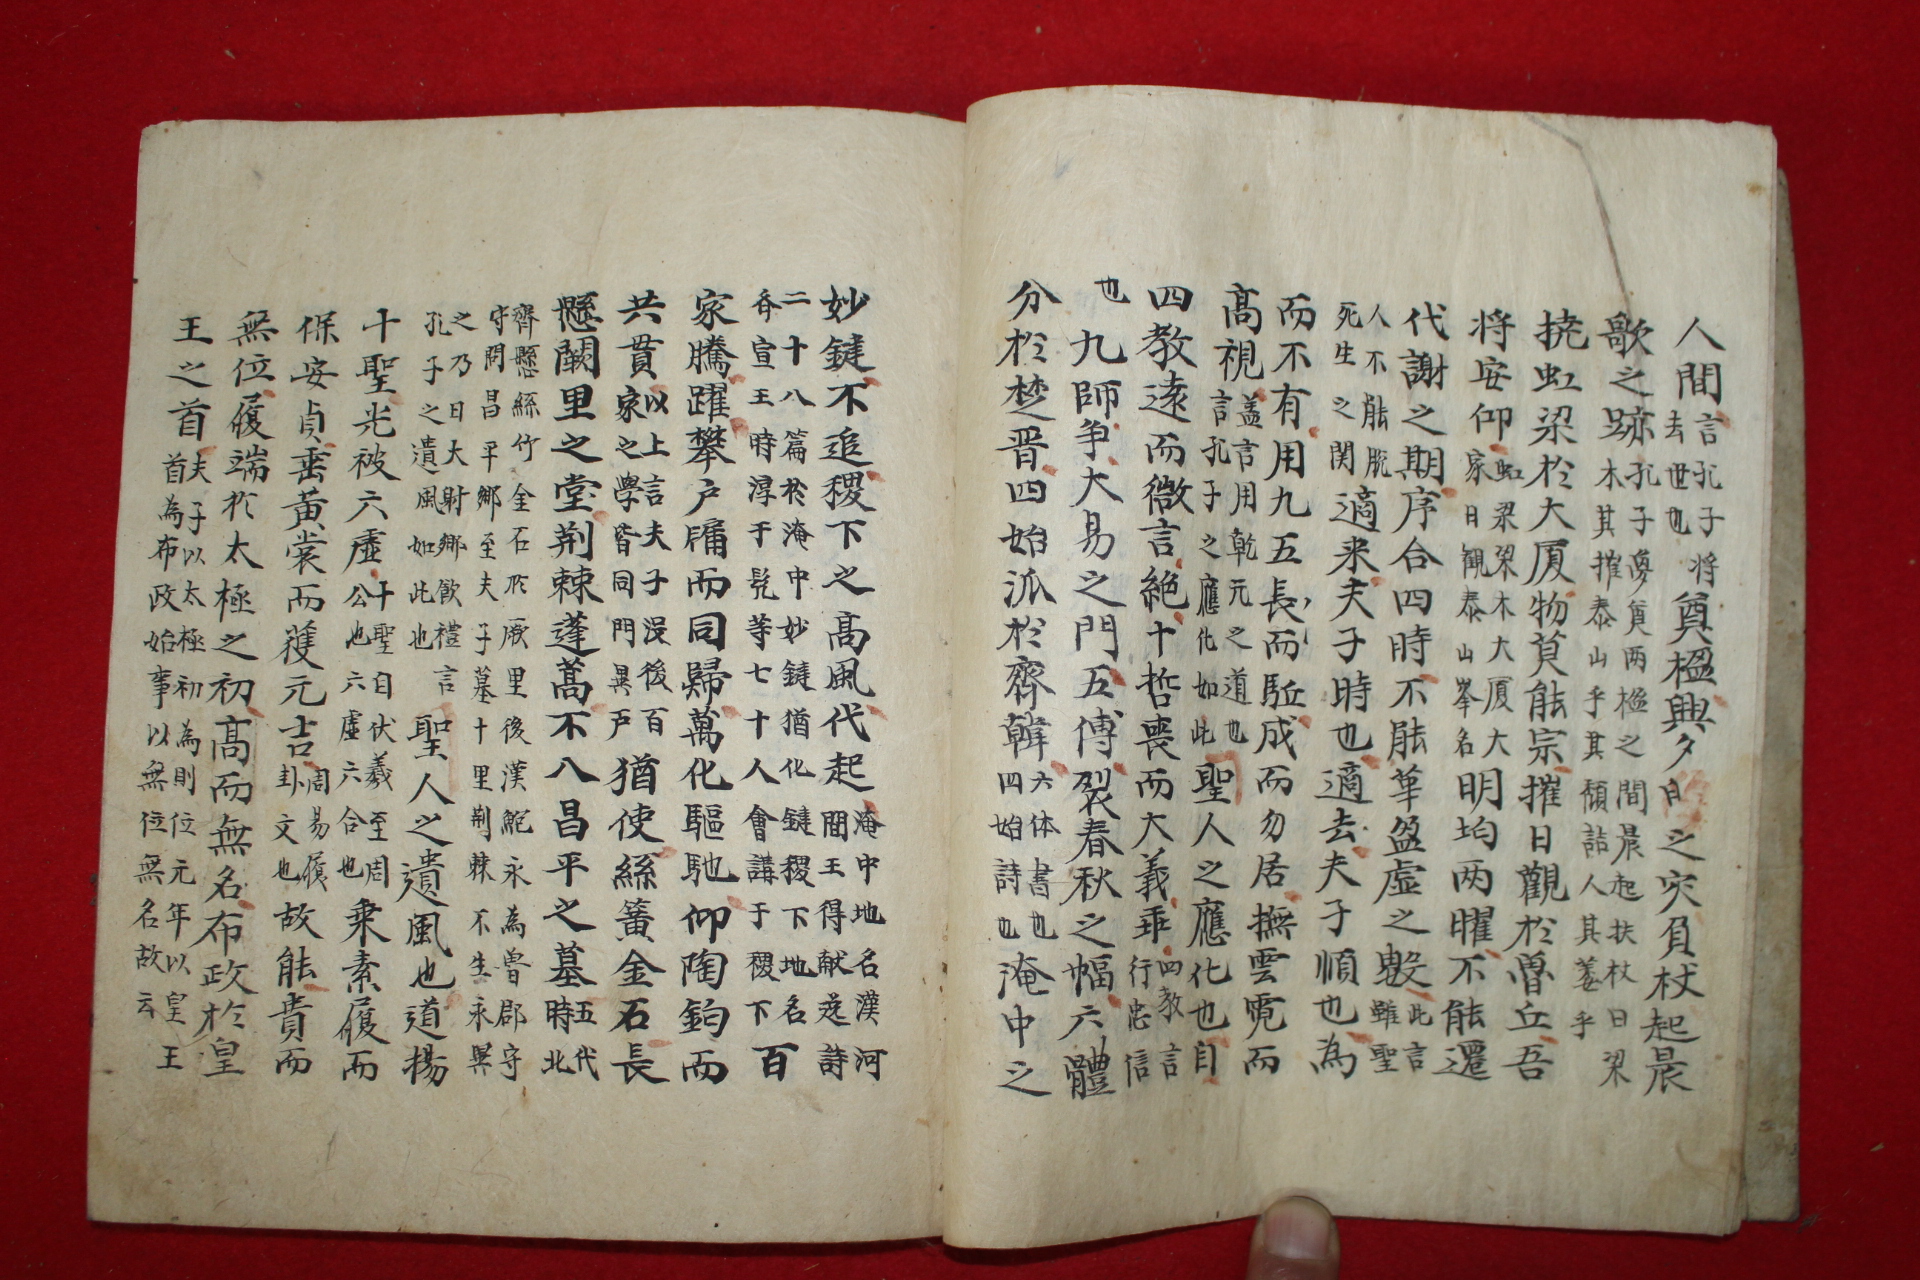 人間言孔子將去世也奠楹興夕之灾負杖起晨
歌之跡孔子夢奠两楹之間晨起扶杖曰梁木其摧泰山乎其頹詰人其萎乎
撓虹梁於大厦物莫能宗摧日觀於魯丘吾
將安仰虹梁梁木大厦大家日觀泰山峯名明均两曜不能還
代謝之期序合四時不能革盈虛之數此言雖聖
人不能脫死生之関適來夫子時也適去夫子順也為
而不有用九五長而駈成而勿居撫雲霓而
高視盖言用乾元之道也言孔子之應化如此聖人之應化也自
四教遠而微言絶十哲喪而大義乖四教言行忠信
也九師争大易之門五傳裂春秋之幅六體
分於楚晋四始派於齊韓六体書也四始詩也淹中之
妙鍵不追稷下之高風代起淹中地名漢河間王得献逸詩
二十八篇於淹中妙鍵猶化鍵稷下地名齐宣王時淳于髡等七十人會講于稷下百
家騰躍攀戶牖而同歸萬化驅馳仰陶鈞而
共貫以上言夫子没後百家之學皆同門異戸猶使絲簧金石長
懸闕里之堂荆棘蓬蒿不入昌平之墓五代時北
齊懸絲竹金石於厥里後漢鮑永為魯郡守守問昌平鄉至夫子墓十里荆棘不生永異
之乃日大射鄉飲禮言孔子之遺風如此也聖人之遺風也道揚
十聖光被六虛十聖自伏羲至周公也六虛六合也乗素履而
保安貞垂黃裳而獲元吉周易履卦文也故能貴而
無位履端於太極之初高而無名布政於皇
王之首夫子以太極初為則位元年以皇王首為布政始事以無位無名故云